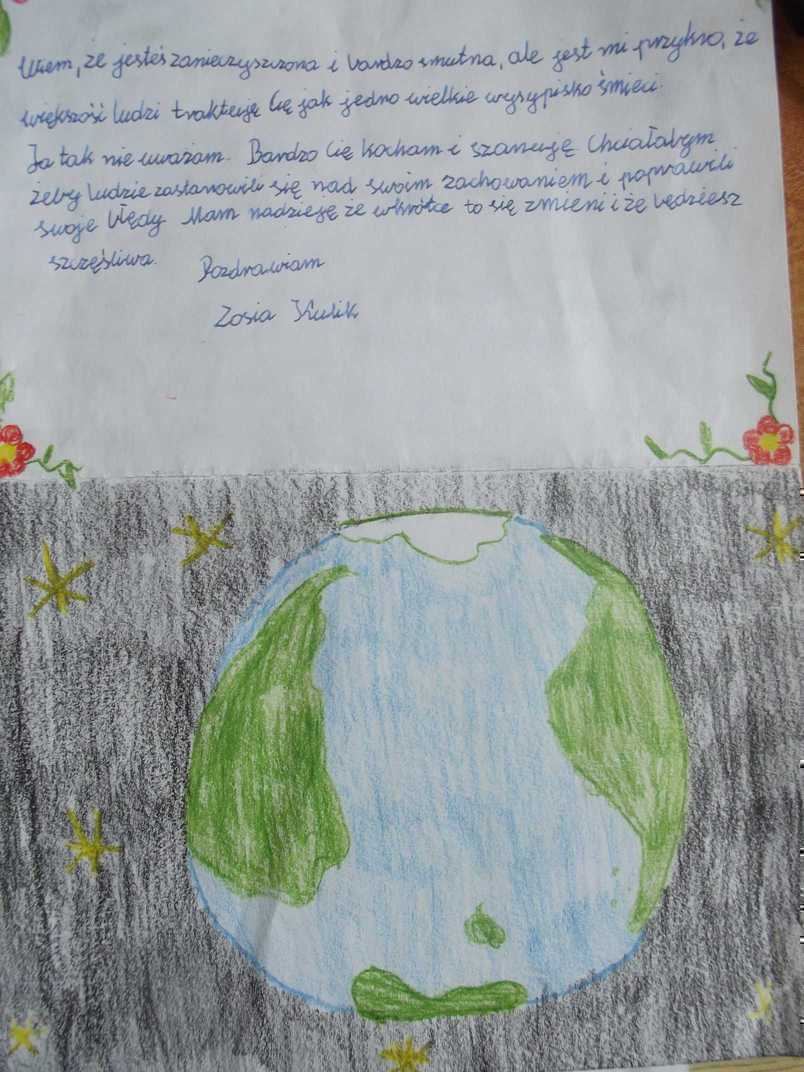 Wiem, że jesteś zanieczyszczona i bardzo smutna, ale jest mi przykro, że
większość ludzi traktuję Cię jak jedno wielkie wysypisko śmieci.
Ja tak nie uważam. Bardzo Cię kocham i szanuję. Chciałabym
żeby ludzie zastanowili się nad swoim zachowaniem i poprawili
swoje błędy. Mam nadzieję że wkrótce to się zmieni i że będziesz
szczęśliwa. Pozdrawiam
Zosia Kulik